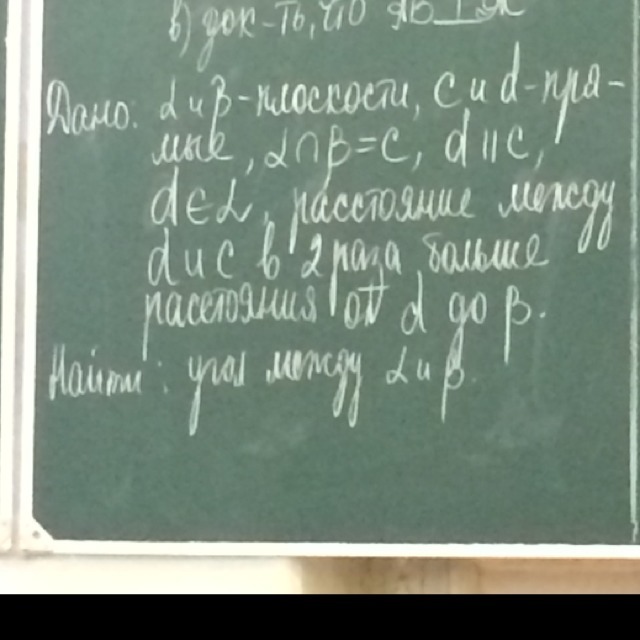 в) док-ть, что
Дано: α и β-плоскости, c и d-пря-
мые, α∩β=c, d||c,
d∈α, расстояние между
d и c в 2 раза больше
расстояния от d до β.
Найти: угол между α и β.